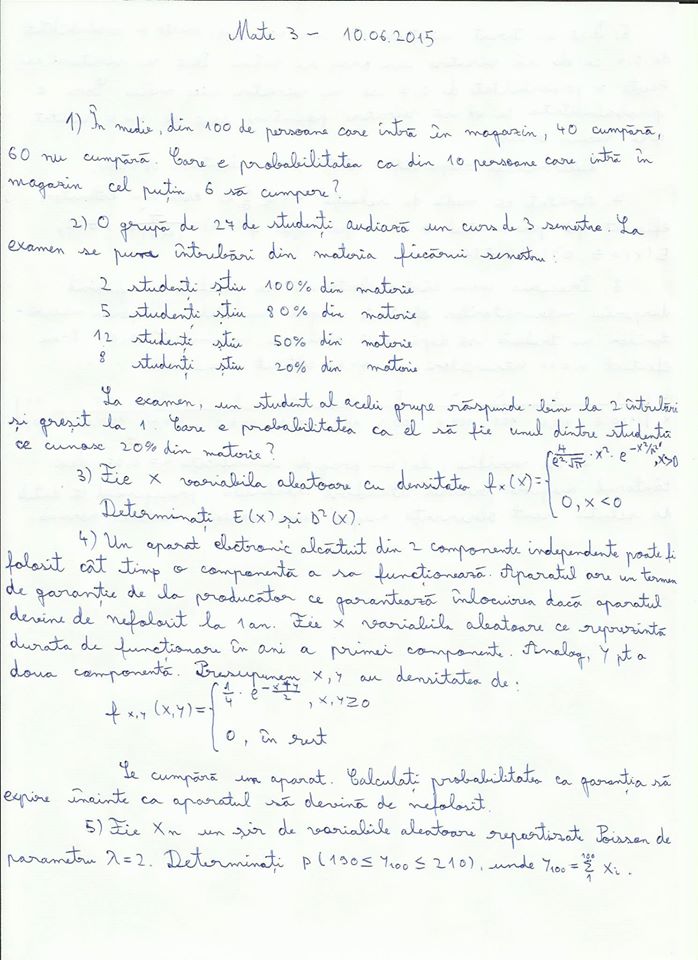 Mate 3 - 10.06.2015
1) În medie, din 100 de persoane care intră în magazin, 40 cumpără,
60 nu cumpără. Care e probabilitatea ca din 10 persoane care intră în
magazin cel puțin 6 să cumpere?
2) O grupă de 27 de studenți audiază un curs de 3 semestre. La
examen se pun întrebări din materia fiecărui semestru:
2 studenți știu 100% din materie
5 studenți știu 80% din materie
12 studenți știu 50% din materie
8 studenți știu 20% din materie
La examen, un student al acelei grupe răspunde bine la 2 întrebări
și greșit la 1. Care e probabilitatea ca el să fie unul dintre studenții
ce cunosc 20% din materie?
3) Fie X variabila aleatoare cu densitatea f_X(x) = { 4/(e²√π) · x² · e^(-x²/π²), x>0
0, x<0
Determinați E(X) și D²(X).
4) Un aparat electronic alcătuit din 2 componente independente poate fi
folosit cât timp o componentă a sa funcționează. Aparatul are un termen
de garanție de la producător ce garantează înlocuirea dacă aparatul
devine de nefolosit la 1 an. Fie X variabila aleatoare ce reprezintă
durata de funcționare în ani a primei componente. Analog, Y pt a
doua componentă. Presupunem X, Y au densitatea de:
f_X,Y (x,y) = { 1/4 · e^(-(x+y)/2), x,y≥0
0, în rest
Se cumpără un aparat. Calculați probabilitatea ca garanția să
expire înainte ca aparatul să devină de nefolosit.
5) Fie Xn un șir de variabile aleatoare repartizate Poisson de
parametru λ=2. Determinați P(190≤Y₁₀₀≤210), unde Y₁₀₀=∑₁¹⁰⁰ Xi.